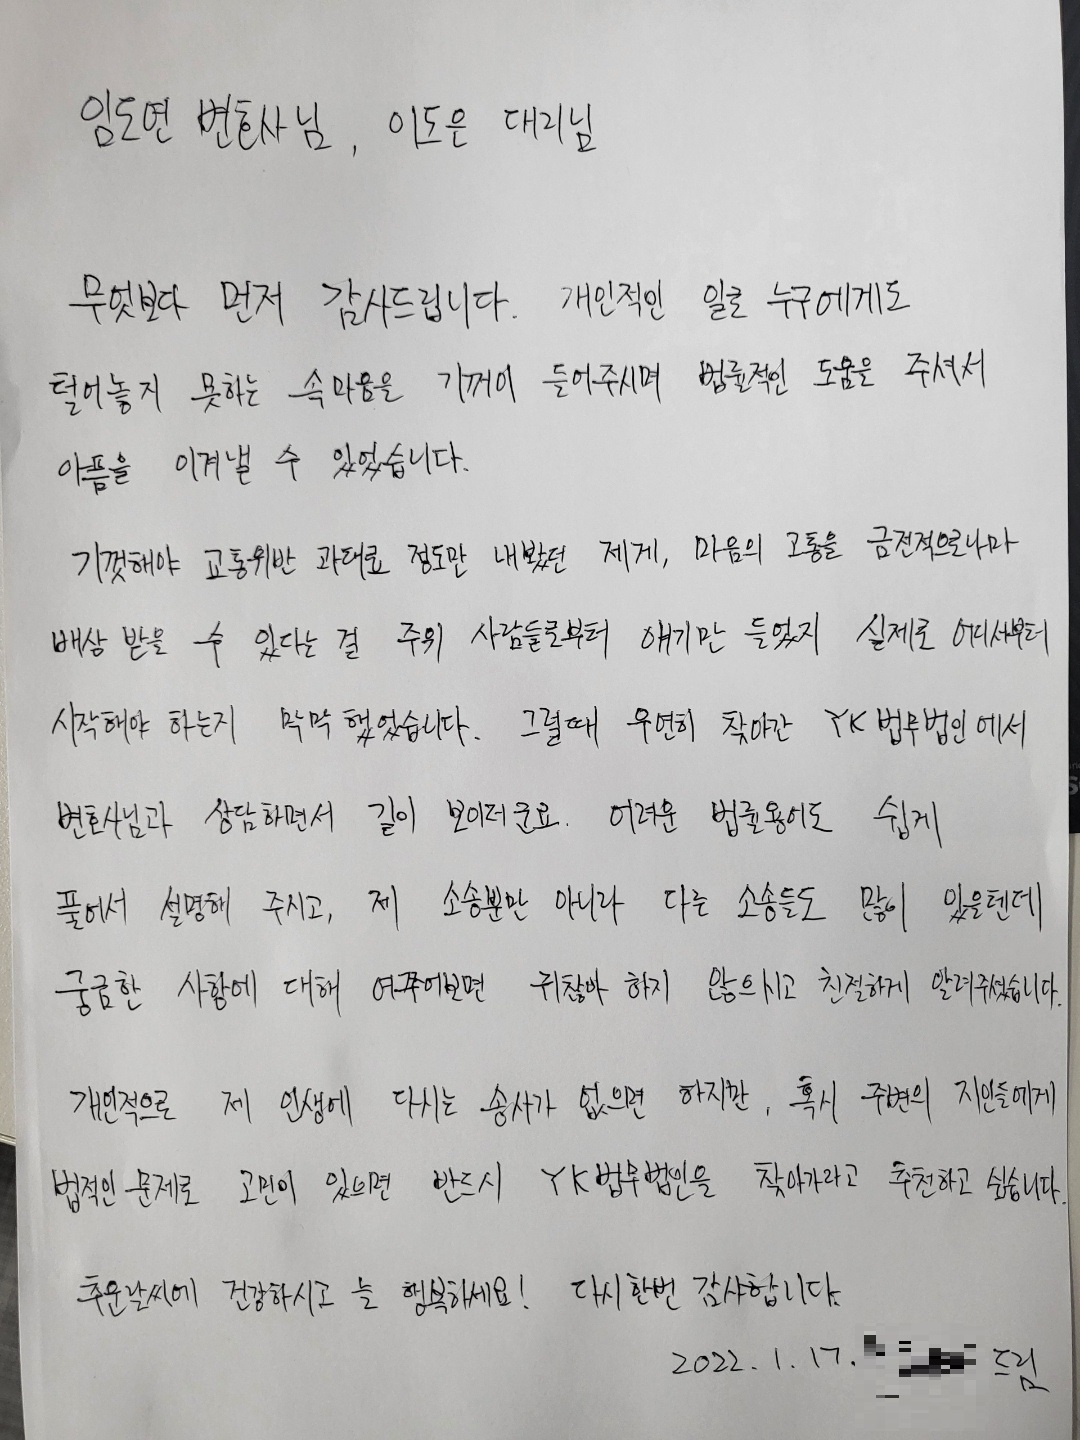 임도연 변호사님, 이도은 대리님
무엇보다 먼저 감사드립니다. 개인적인 일로 누구에게도
털어놓지 못하는 속마음을 기꺼이 들어주시며 법률적인 도움을 주셔서
아픔을 이겨낼 수 있었습니다.
기껏해야 교통위반 과태료 정도만 내봤던 제게, 마음의 고통을 금전적으로나마
배상 받을 수 있다는 걸 주위 사람들로부터 얘기만 들었지 실제로 어디서부터
시작해야 하는지 막막했었습니다. 그럴때 우연히 찾아간 YK법무법인에서
변호사님과 상담하면서 길이 보이더군요. 어려운 법률용어도 쉽게
풀어서 설명해 주시고, 제 소송뿐만 아니라 다른 소송들도 많이 있을텐데
궁금한 사항에 대해 여쭈어보면 귀찮아 하지 않으시고 친절하게 알려주셨습니다.
개인적으로 제 인생에 다시는 송사가 없으면 하지만, 혹시 주변의 지인들에게
법적인 문제로 고민이 있으면 반드시 YK법무법인을 찾아가라고 추천하고 싶습니다.
추운날씨에 건강하시고 늘 행복하세요! 다시한번 감사합니다.
2022. 1. 17. 드림